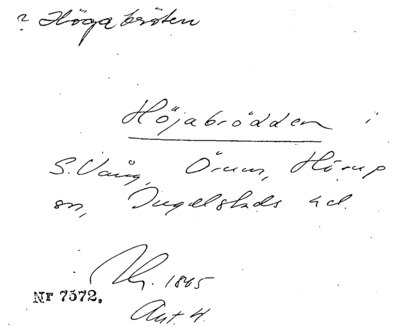 ? Höga bröten
Höjabrödden i
S. Vång, Örum, Hörup
sn, Ingelstads hd.
1845
Nr 7572.
Akt. 4.